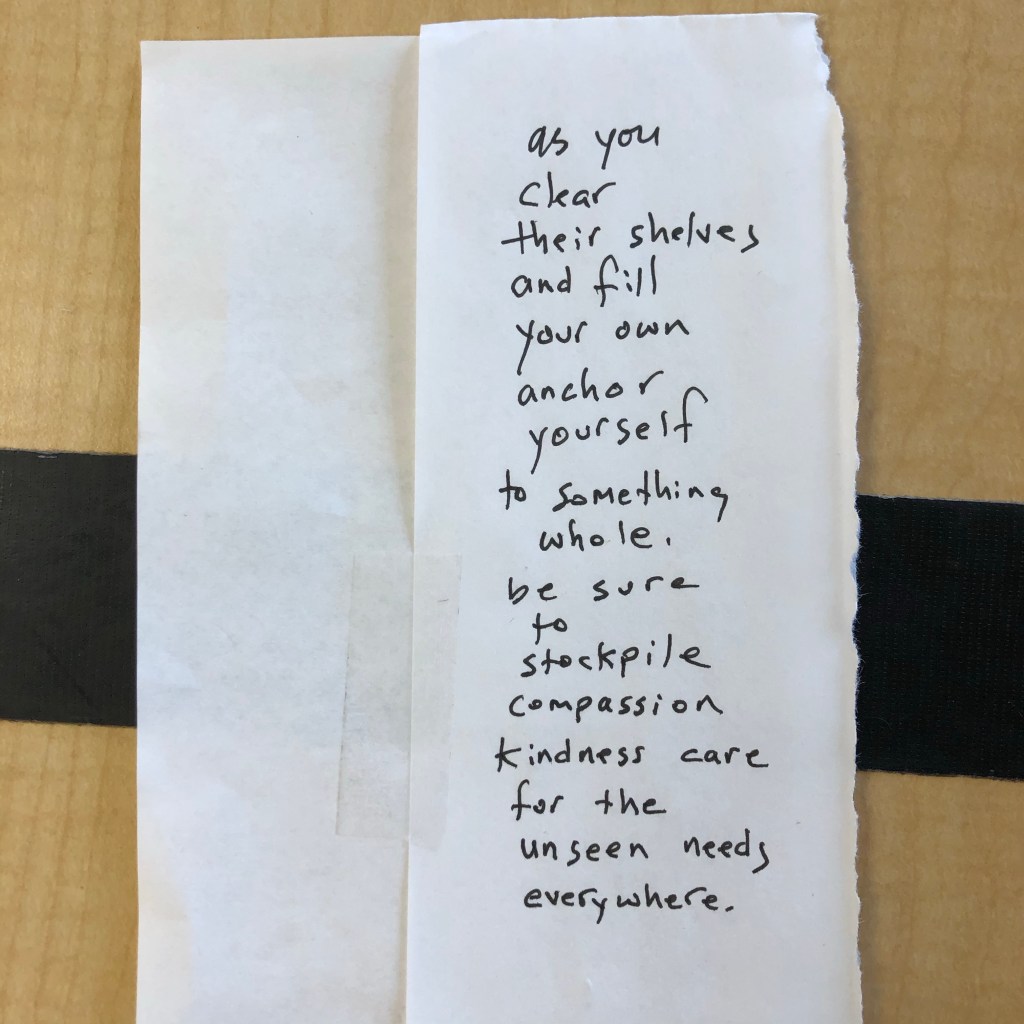 as you
clear
their shelves
and fill
your own
anchor
yourself
to something
whole.
be sure
to
stockpile
compassion
kindness care
for the
unseen needs
everywhere.